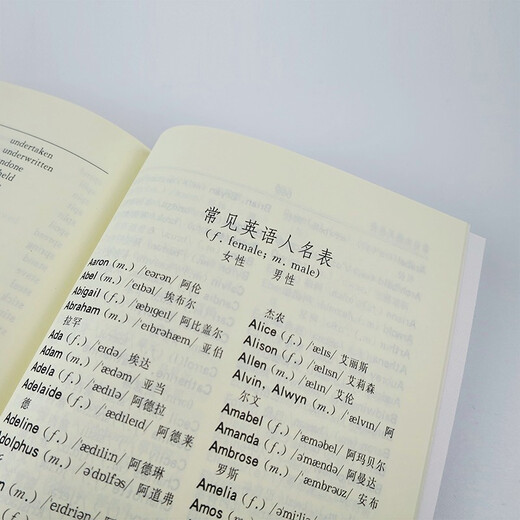 undertaken
underwritten
常见英语人名表
(f. female; m. male)
女性 男性
Aaron (m.) /eərən/ 阿伦
Abel (m.) /eɪbəl/ 埃布尔
Abigail (f.) /æbɪgeɪl/ 阿比盖尔
Abraham (m.) /eɪbrəhæm/ 亚伯
拉罕
Ada (f.) /eɪdə/ 埃达
Adam (m.) /ædəm/ 亚当
Adela (f.) /ædɪlə/ 阿德拉
Adelaide (f.) /ædɪleɪd/ 阿德莱
德
Adeline (f.) /ædɪliːn/ 阿德琳
Adolphus (m.) /əˈdɒlfəs/ 阿道弗
杰农
Alice (f.) /ælɪs/ 艾丽斯
Alison (f.) /ælɪsn/ 艾莉森
Allen (m.) /ælɪn/ 艾伦
Alvin, Alwyn (m.) /ælvɪn/ 阿
尔文
Amabel (f.) /æməbel/ 阿玛贝尔
Amanda (f.) /əmændə/ 阿曼达
Ambrose (m.) /æmbrəʊz/ 安布
罗斯
Amelia (f.)
Amos (m.)